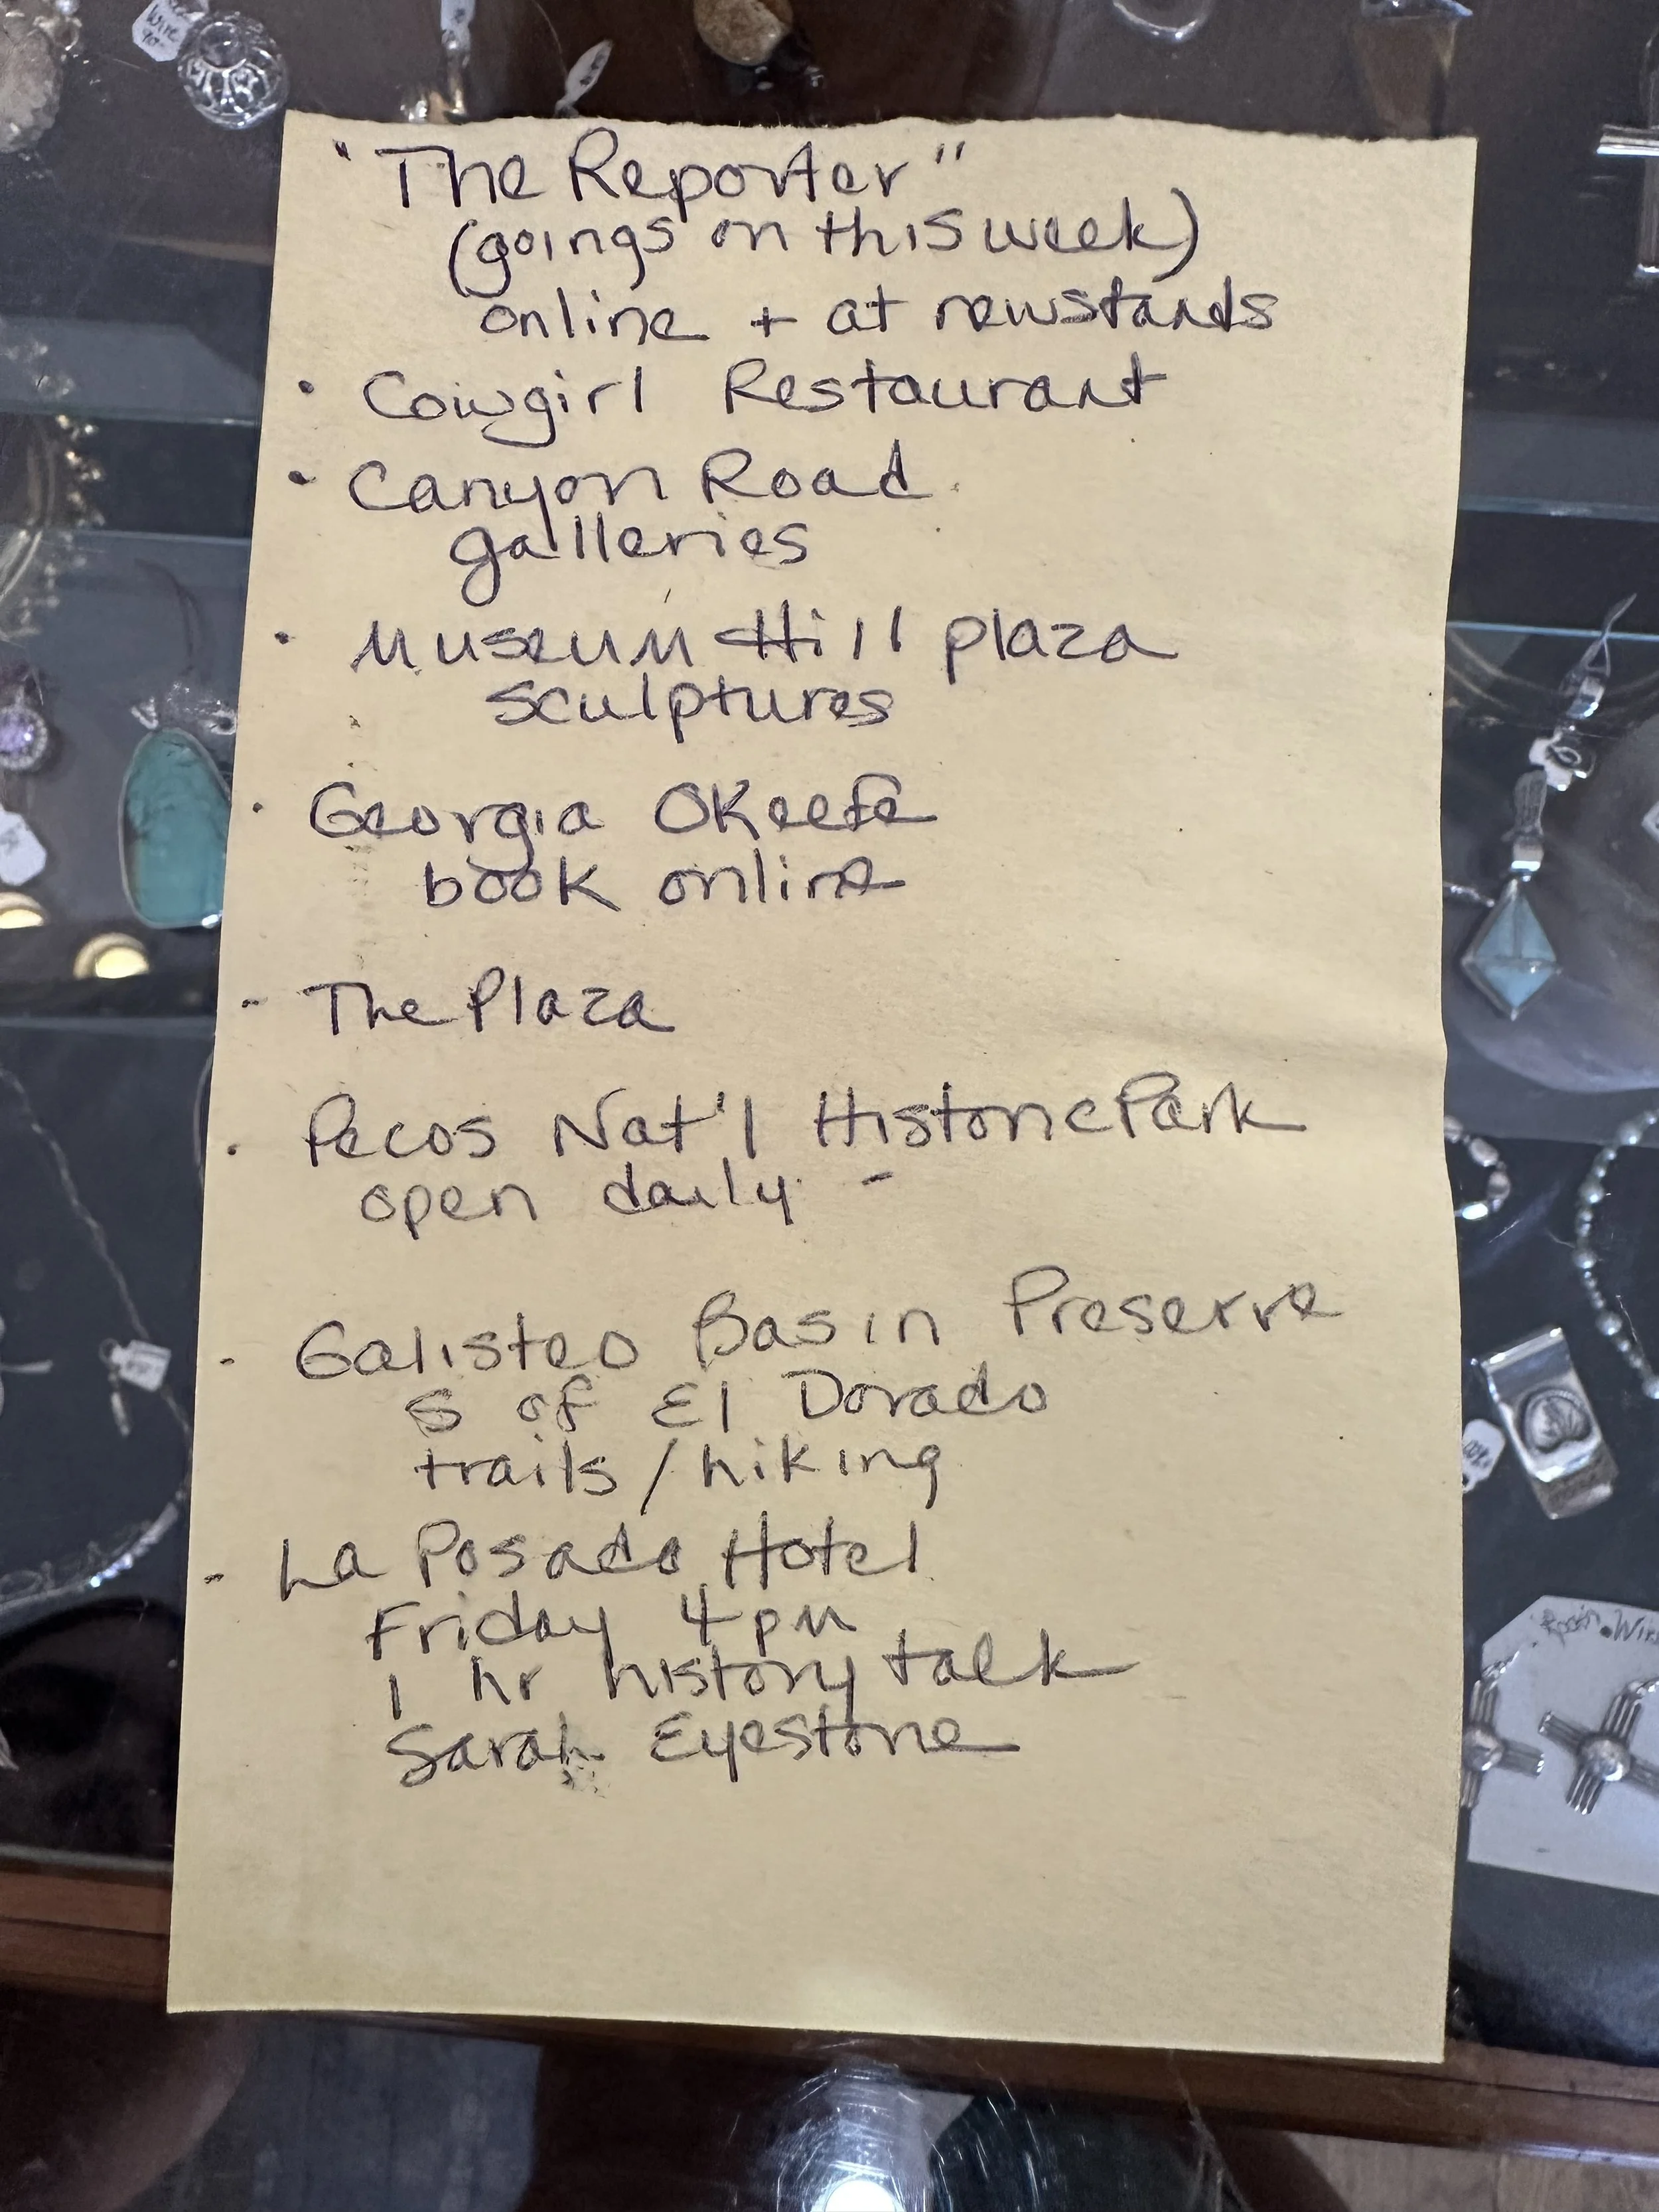 "The Reporter"
(goings on this week)
online + at newstands
• Cowgirl Restaurant
• Canyon Road
galleries
• Museum Hill plaza
sculptures
• Georgia OKeefe
book online
- The Plaza
• Pecos Nat'l Historic Park
open daily -
- Galisteo Basin Preserve
S of El Dorado
trails / hiking
- La Posada Hotel
Friday 4 pm
1 hr history talk
Sarah Eyestone